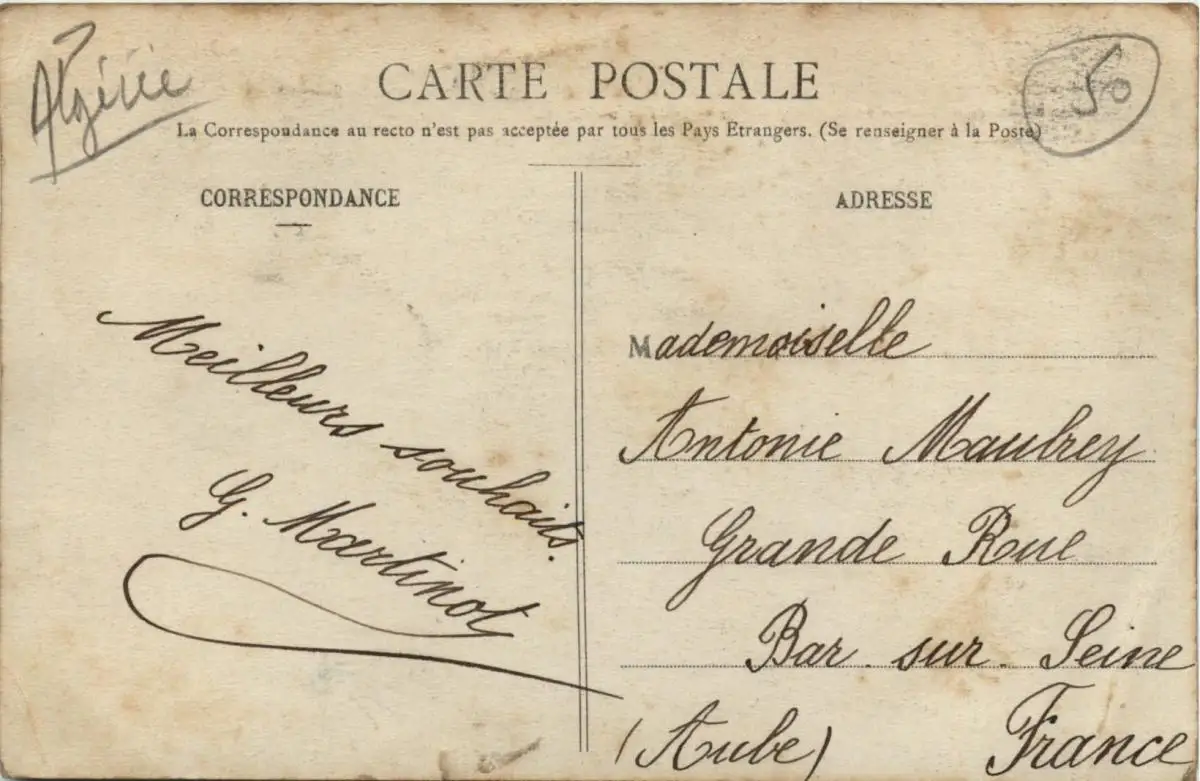 Algérie
50
CARTE POSTALE
La Correspondance au recto n'est pas acceptée par tous les Pays Etrangers. (Se renseigner à la Poste)
CORRESPONDANCE
Meilleurs souhaits.
G. Martinot
ADRESSE
Mademoiselle
Antonie Maubrey
Grande Rue
Bar-sur-Seine
(Aube) France